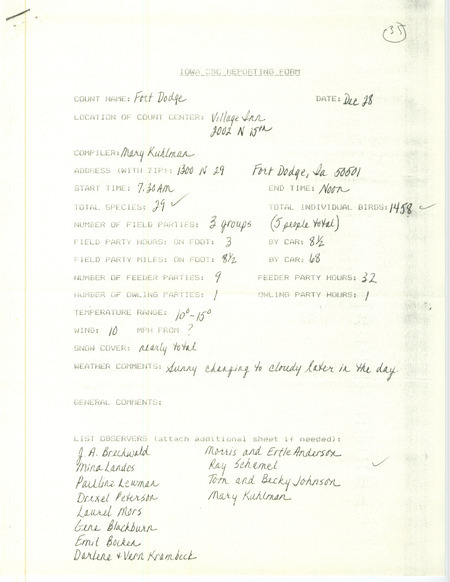 (31)
IOWA CBC REPORTING FORM
COUNT NAME: Fort Dodge DATE: Dec 28
LOCATION OF COUNT CENTER: Village Inn
2002 N 15th
COMPILER: Mary Kuhlman
ADDRESS (WITH ZIP): 1300 N 29 Fort Dodge, Ia 50501
START TIME: 7:30 AM END TIME: Noon
TOTAL SPECIES: 29 ✓ TOTAL INDIVIDUAL BIRDS: 1458 ✓
NUMBER OF FIELD PARTIES: 3 groups (5 people total)
FIELD PARTY HOURS: ON FOOT: 3 BY CAR: 8½
FIELD PARTY MILES: ON FOOT: 8½ BY CAR: 68
NUMBER OF FEEDER PARTIES: 9 FEEDER PARTY HOURS: 32
NUMBER OF OWLING PARTIES: 1 OWLING PARTY HOURS: 1
TEMPERATURE RANGE: 10°-15°
WIND: 10 MPH FROM ?
SNOW COVER: nearly total
WEATHER COMMENTS: Sunny changing to cloudy later in the day
GENERAL COMMENTS:
LIST OBSERVERS (attach additional sheet if needed):
J. A. Brechwald Morris and Ertle Anderson
Mina Landes Ray Schamel ✓
Pauline Lewman Tom and Becky Johnson
Drexel Peterson Mary Kuhlman
Laurel Mors
Gene Blackburn
Emil Becker
Darlene & Vern Krambeck